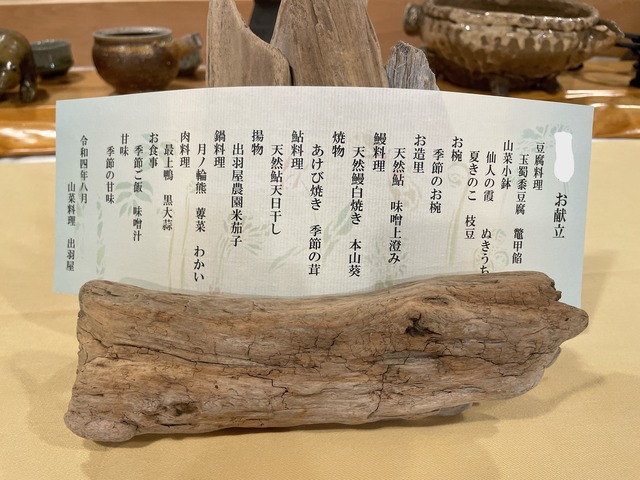 お献立
豆腐料理
玉蜀黍豆腐 鼈甲餡
山菜小鉢
仙人の霞 ぬきうち
夏きのこ 枝豆
お椀
季節のお椀
お造里
天然鮎 味噌上澄み
鰻料理
天然鰻白焼き 本山葵
焼物
あけび焼き 季節の茸
鮎料理
天然鮎天日干し
揚物
出羽屋農園米茄子
鍋料理
月ノ輪熊 蓴菜 わかい
肉料理
最上鴨 黒大蒜
お食事
季節ご飯 味噌汁
甘味
季節の甘味
令和四年八月
山菜料理 出羽屋